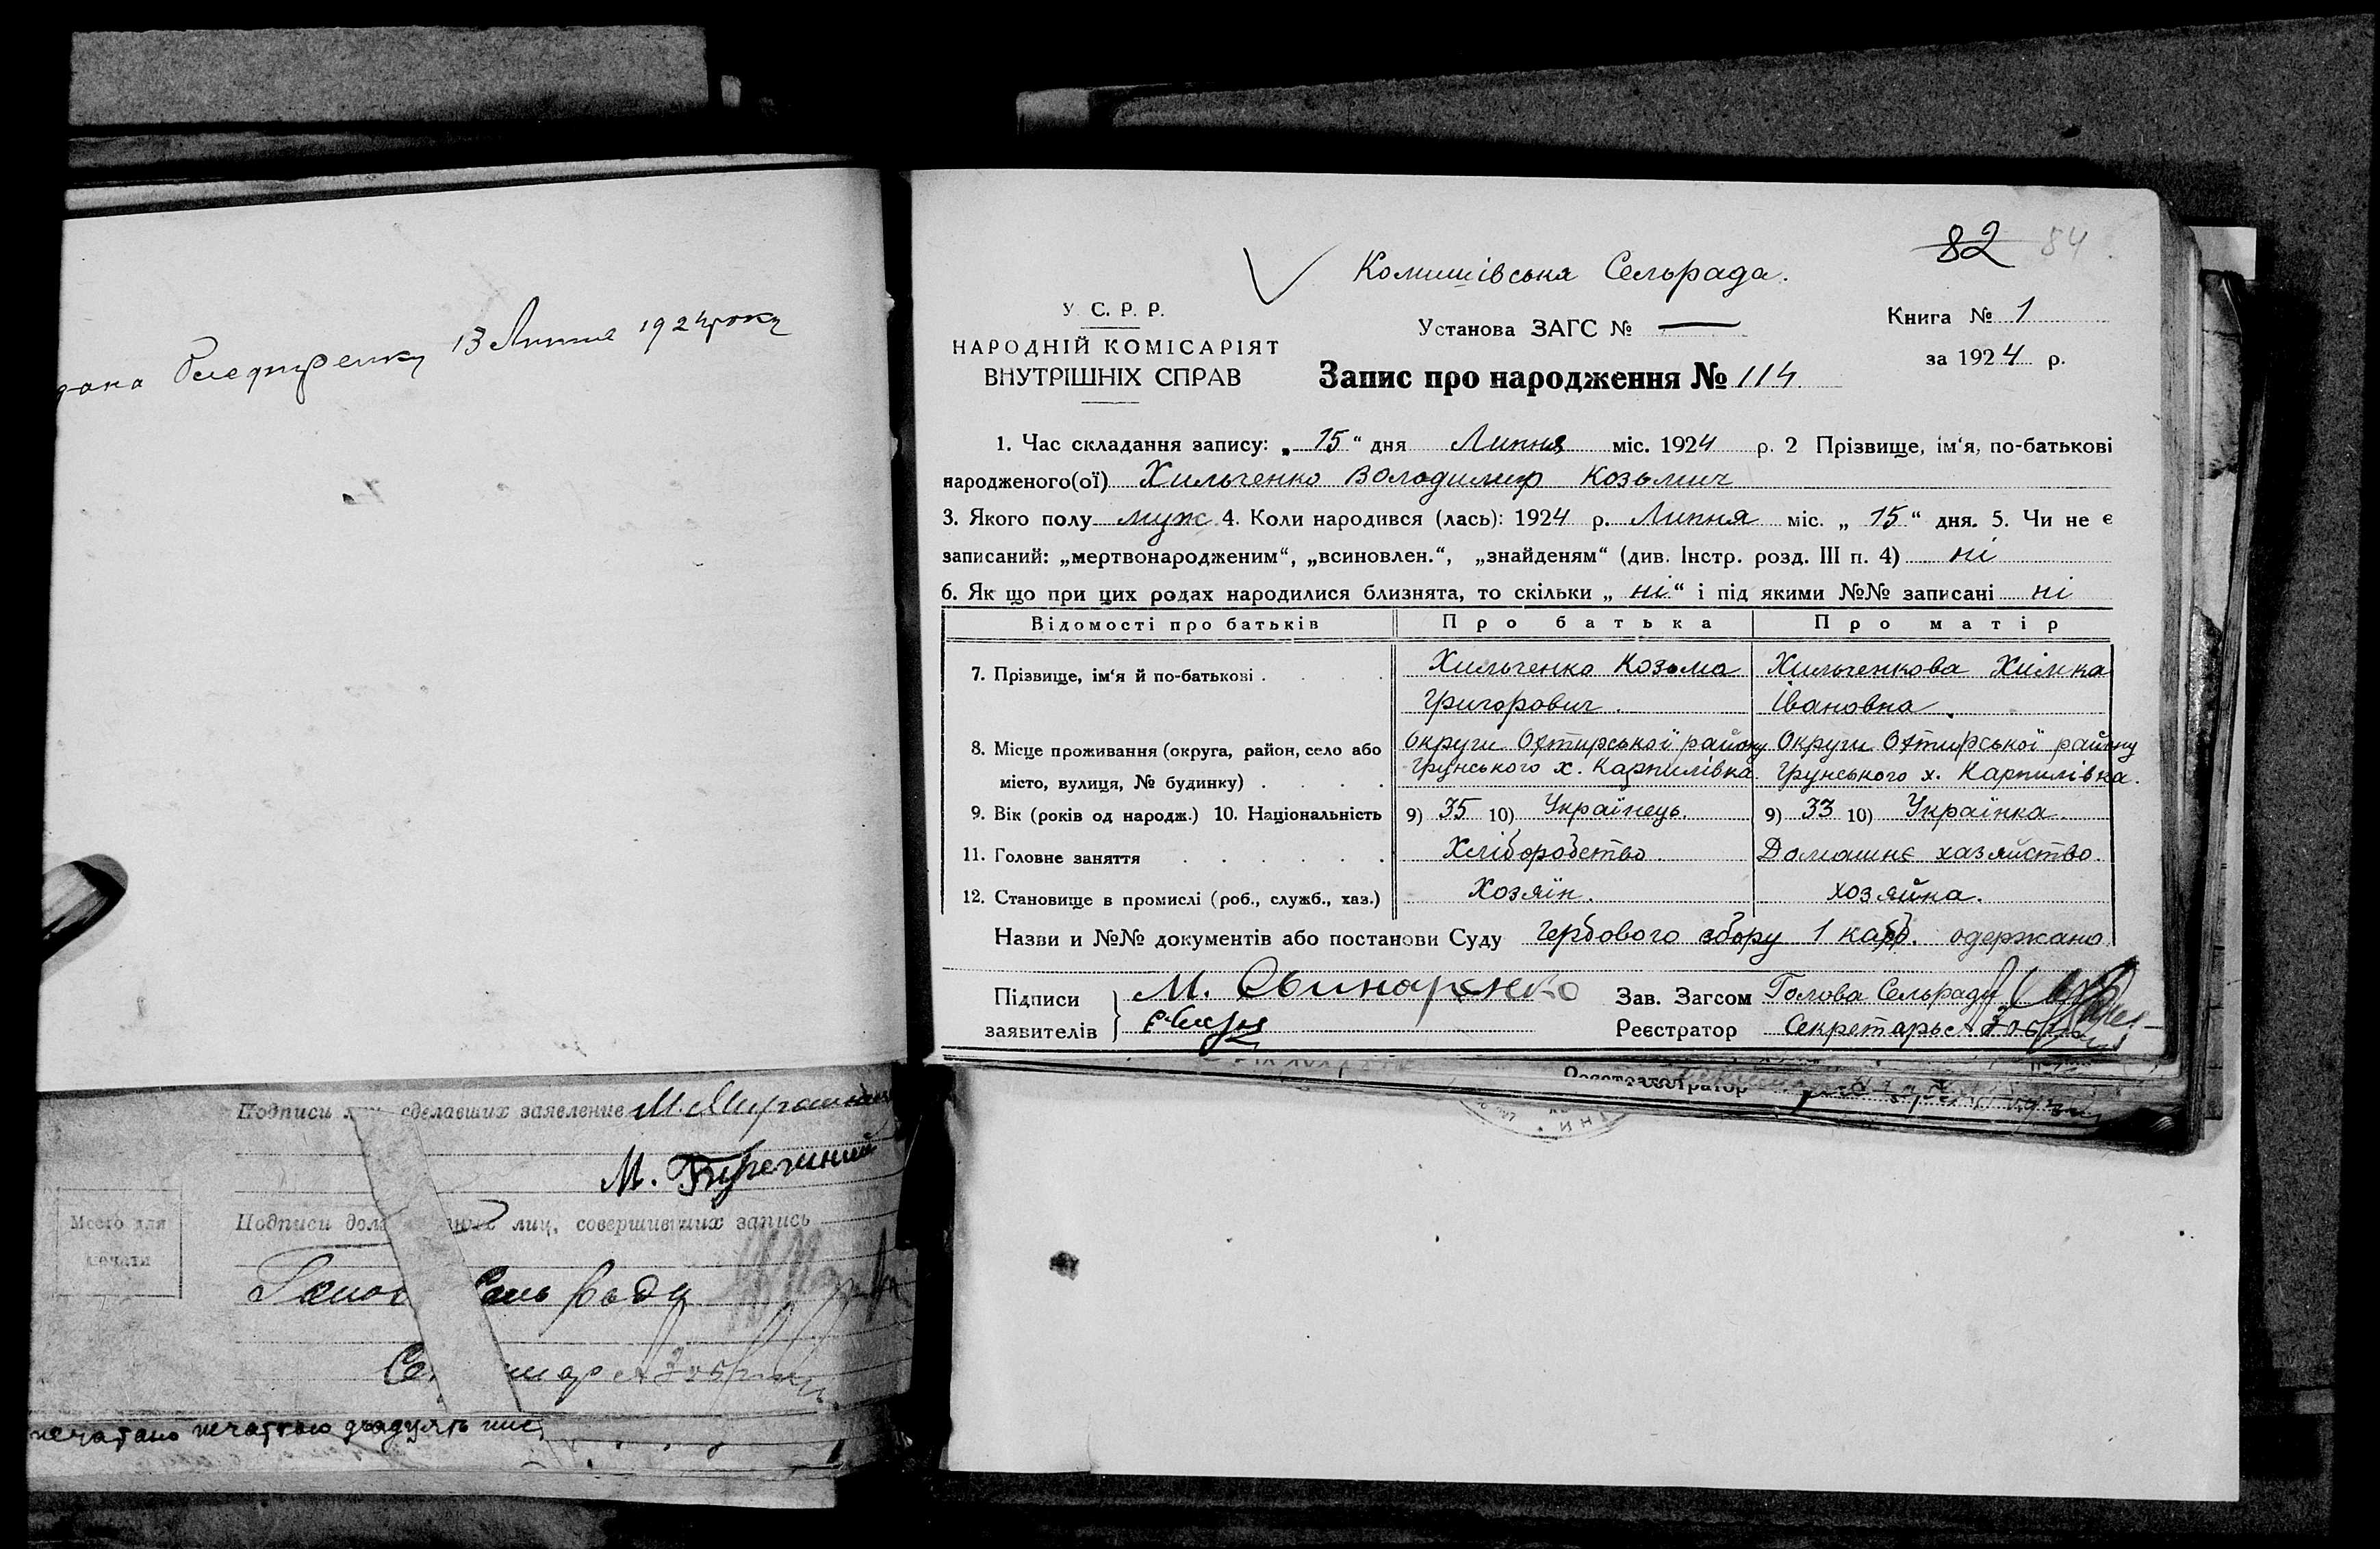 13 Липня 1924 року
82 84
Комишівська Сельрада.
У. С. Р. Р.
НАРОДНІЙ КОМІСАРІЯТ
ВНУТРІШНІХ СПРАВ
Установа ЗАГС № —
Запис про народження № 114
Книга № 1
за 1924 р.
1. Час складання запису: „15“ дня Липня міс. 1924 р. 2 Прізвище, ім‘я, по-батькові
народженого(ої) Хильченко Володимир Козьмич
3. Якого полу муж 4. Коли народився (лась): 1924 р. Липня міс. „15“ дня. 5. Чи не є
записаний: „мертвонародженим“, „всиновлен.“, „знайденям“ (див. Інстр. розд. III п. 4) ні
6. Як що при цих родах народилися близнята, то скільки „ні“ і під якими №№ записані ні
Відомості про батьків Про батька Про матір
7. Прізвище, ім‘я й по-батькові . . . . Хильченко Козьма Хильченкова Химка
Григорович. Івановна.
8. Місце проживання (округа, район, село або Округи Охтирської району Округи Охтирської району
місто, вулиця, № будинку) . . . . Грунського х. Карпилівка. Грунського х. Карпилівка.
9. Вік (років од народж.) 10. Національність 9) 35 10) Українець. 9) 33 10) Українка.
11. Головне заняття . . . . . . Хліборобство. Домашнє хазяйство.
12. Становище в промислі (роб., служб., хаз.) Хозяїн. хозяйка.
Назви и №№ документів або постанови Суду Гербового збору 1 карб. одержано
Підписи
заявителів
М. Свинаренко
Зав. Загсом Голова Сельради
Реєстратор Секретарь
Подписи сделавших заявление М.
М.
Место для
печати
Подписи лиц, совершивших запись
печатано печаткою